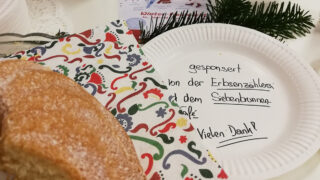 gesponsert
von der Erbsenzählerei
d dem Siebenbrunner
Vielen Dank!